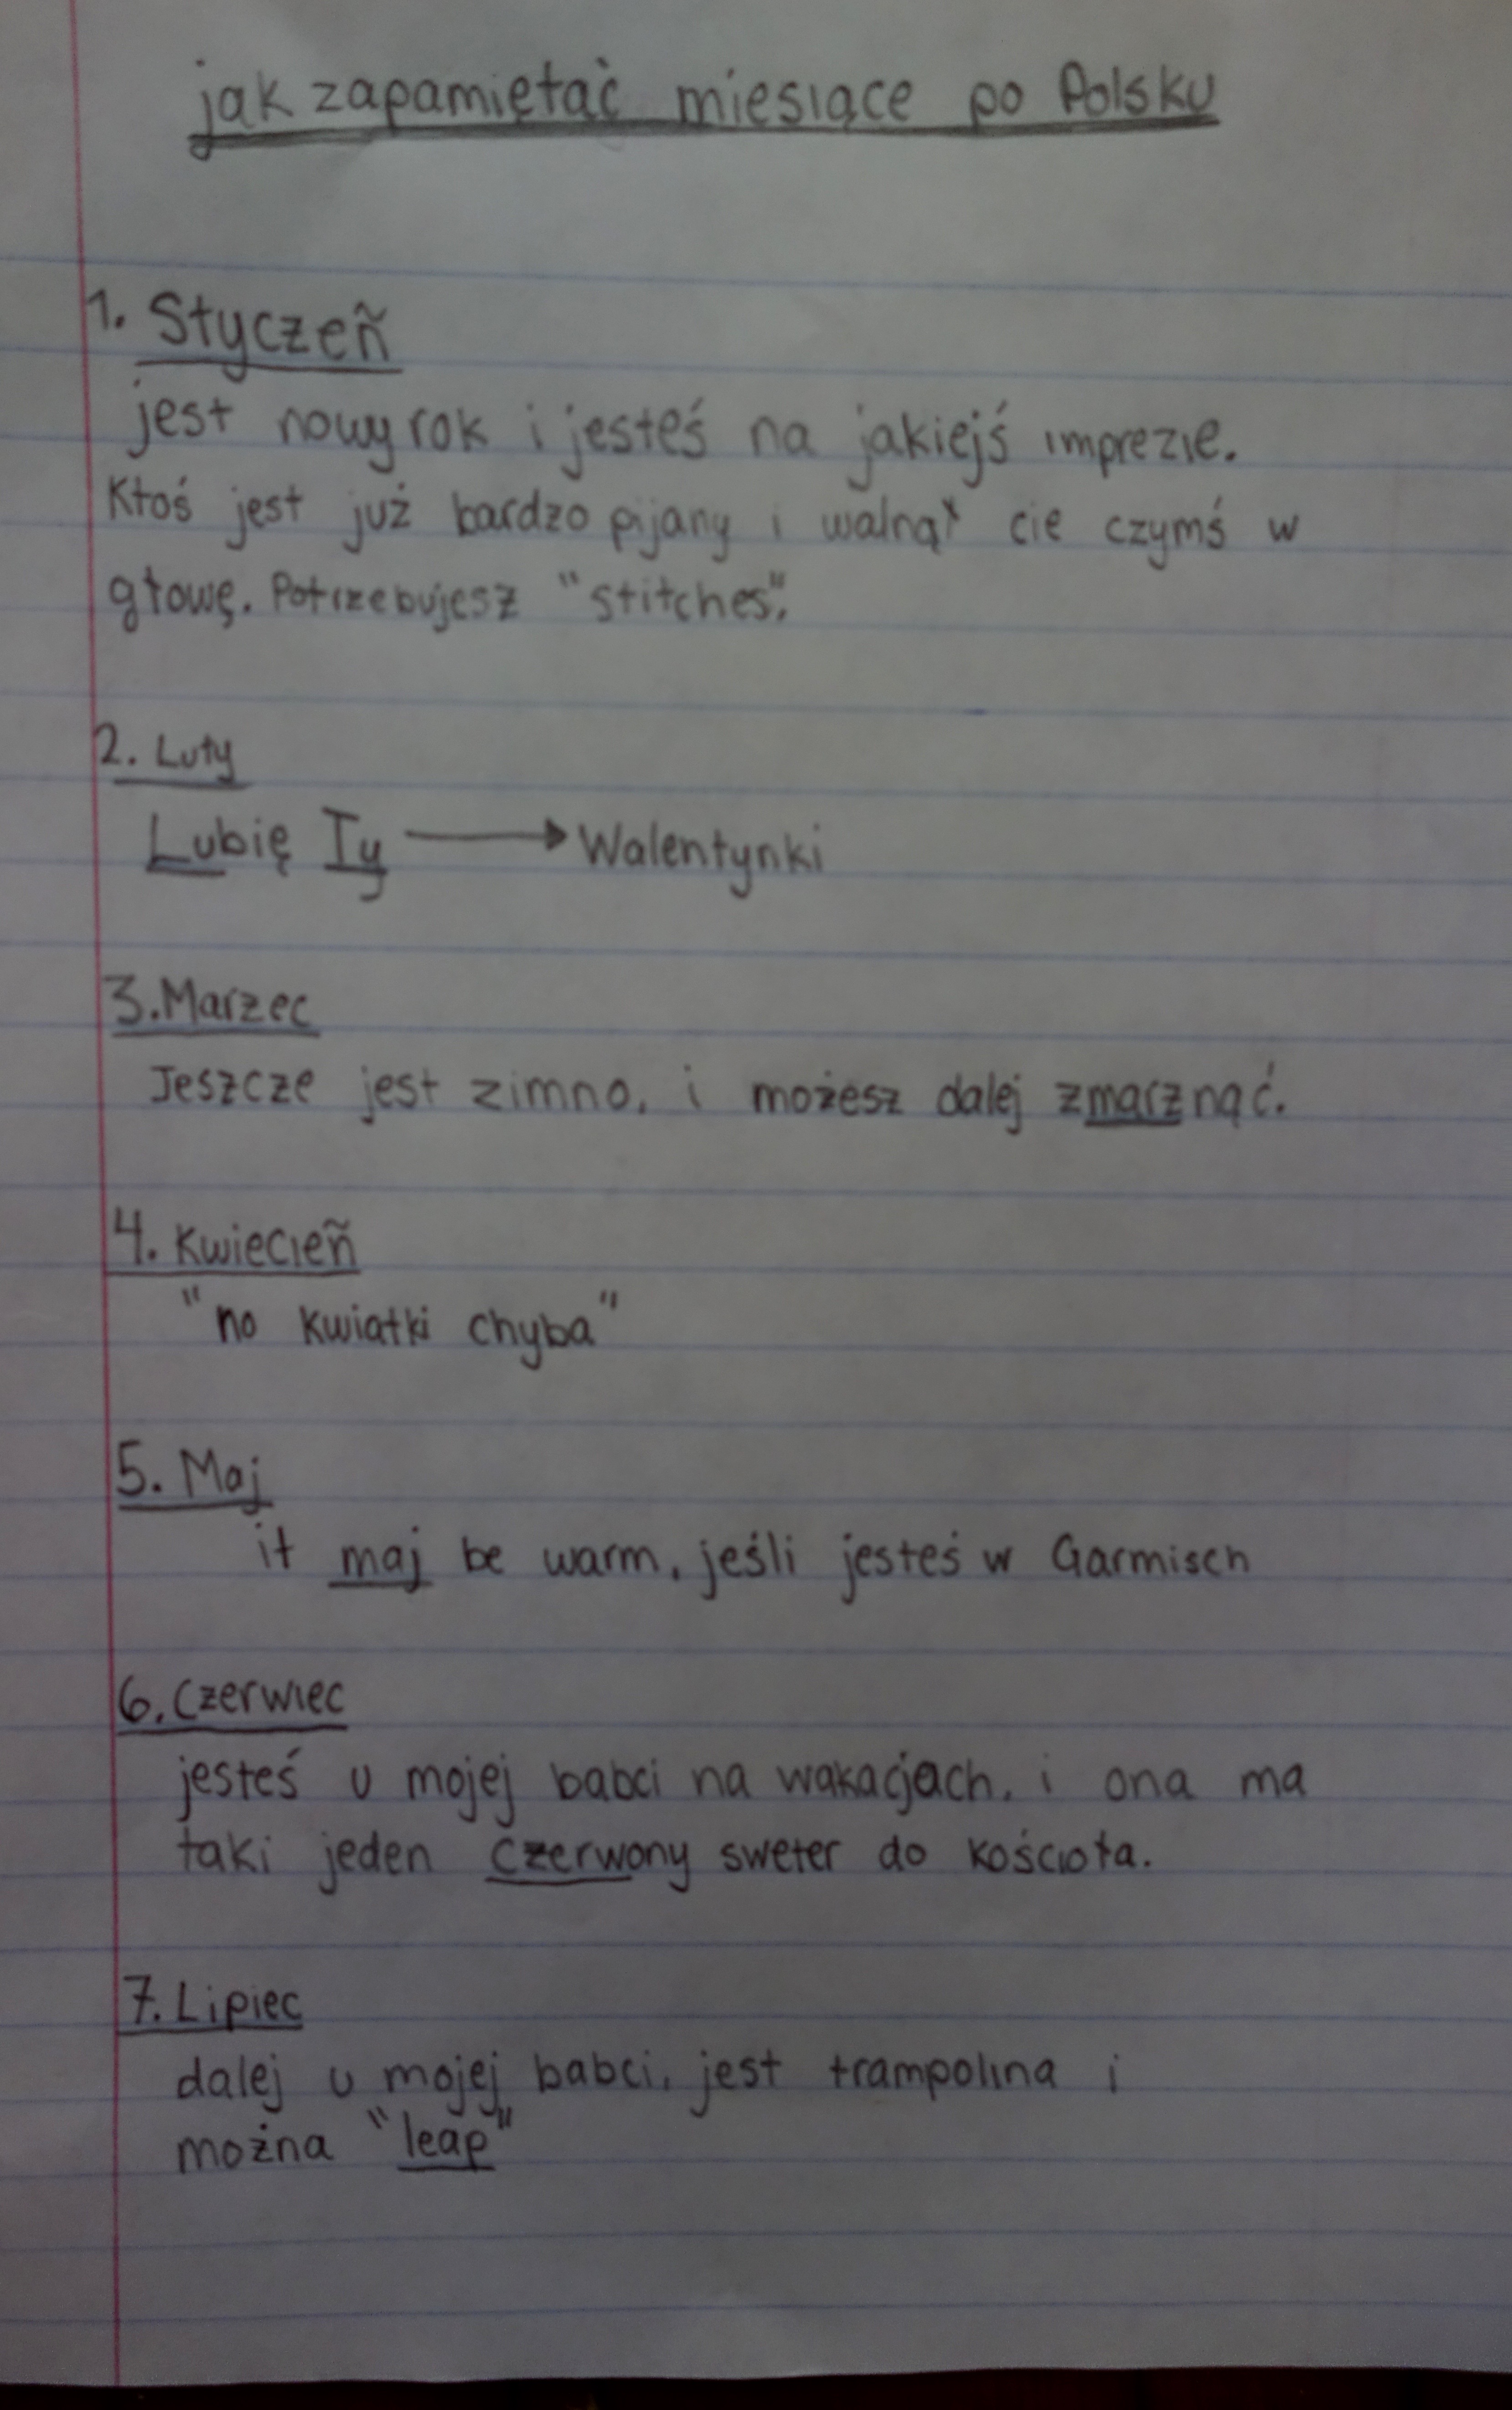 jak zapamiętać miesiące po Polsku
1. Styczeñ
jest nowy rok i jesteś na jakiejś imprezie.
Ktoś jest już bardzo pijany i walnął cie czymś w
głowę. Potrzebujesz "stitches".
2. Luty
Lubię Ty → Walentynki
3. Marzec
Jeszcze jest zimno, i możesz dalej zmarznąć.
4. Kwiecieñ
"no kwiatki chyba"
5. Maj
it maj be warm, jeśli jesteś w Garmisch
6. Czerwiec
jesteś u mojej babci na wakacjach, i ona ma
taki jeden czerwony sweter do kościoła.
7. Lipiec
dalej u mojej babci, jest trampolina i
można "leap"